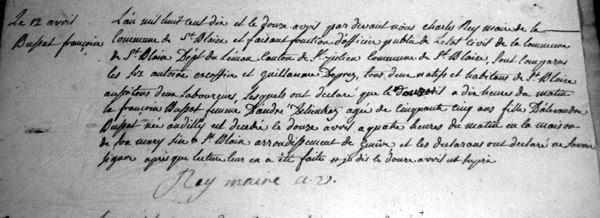 Le 12 avril
Bussat françoise
L'an mil huit cent dix et le douze avril par devant nous charles Rey maire de la
Commune de St Blaise et faisant fonction d'officier public de l'etat civil de la Commune
de St Blaise Dépt du Léman Canton de St julien Commune de St Blaise, sont comparus
les srs antoine et guillaume Duprez, tous deux natifs et habitans de St Blaise
tous deux Laboureurs, Lesquels ont déclaré que le douze à dix heures du matin
la françoise Bussat femme D'andré agée de Cinquante cinq ans fille D'alexandre
Bussat née andilly est decedée le douze avril a quatre heures du matin en la maison
de son mary sise à St Blaise arrondissement de et les declarans ont declaré ne savoir
signer après que lecture leur en a été faite dit le douze avril ut supra
Rey maire